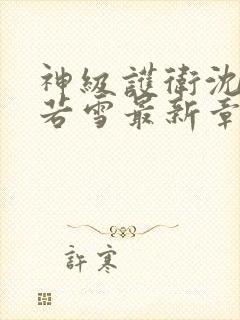 神級護衛沈
若雪最新章
許寒